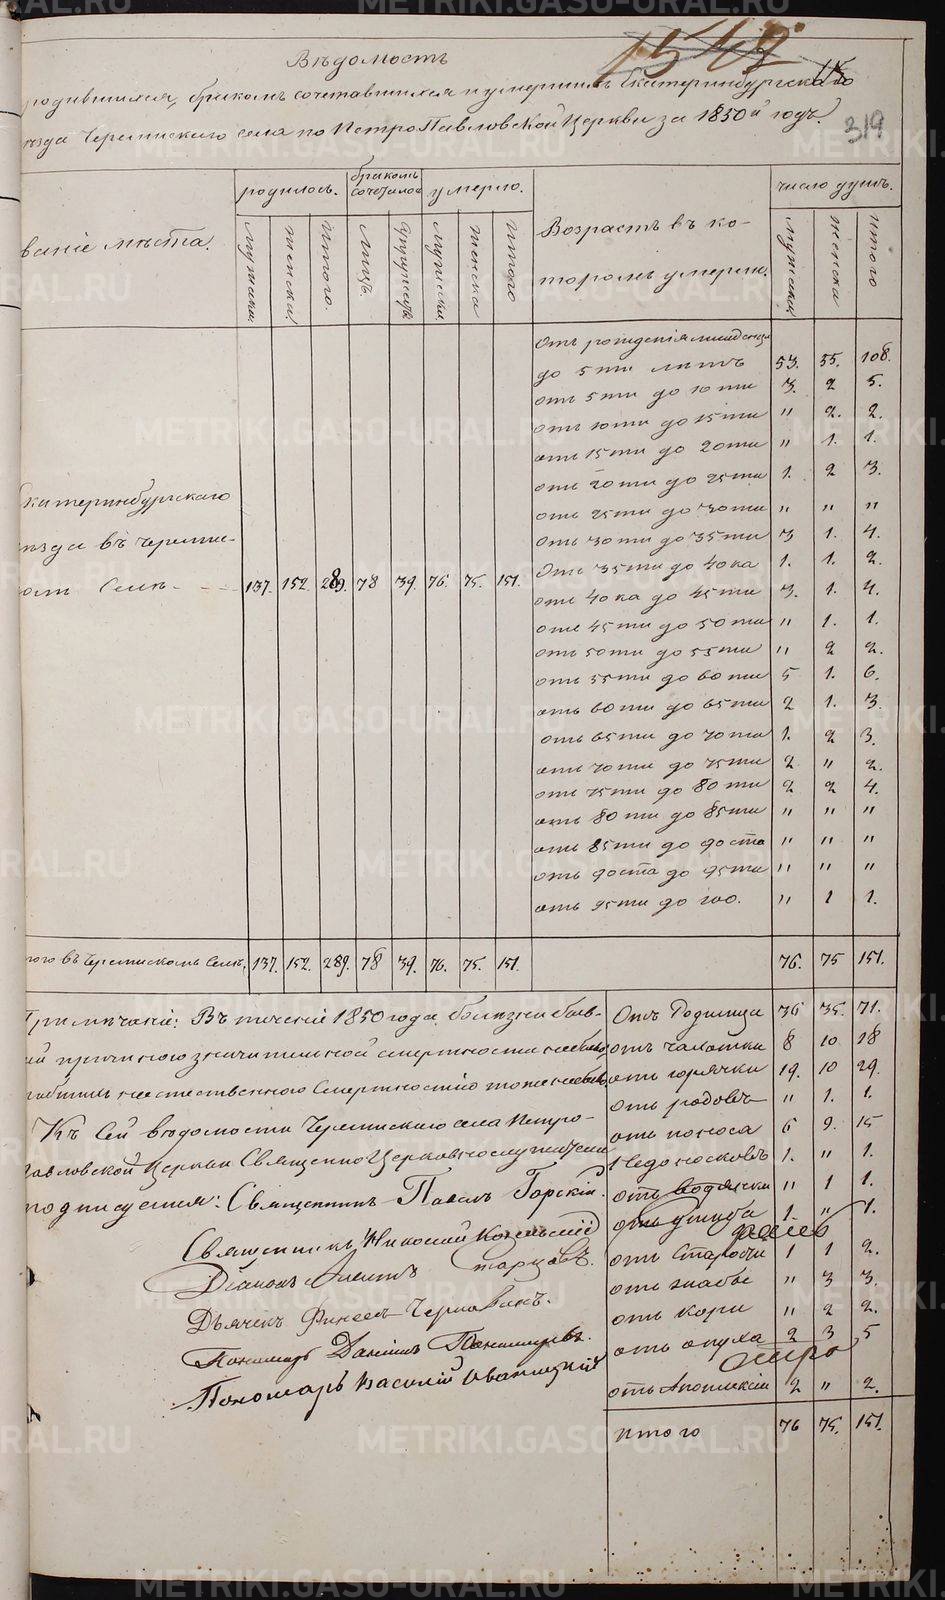 Вѣдомость
родившихся, бракомъ сочетавшихся и умершихъ Екатеринбургскаго
уѣзда Черемисскаго села по Петро Павловской Церкви за 1850й годъ.
319
родилось. бракомъ сочеталось умерло. число душъ.
ваніе мѣста. мужска. женска. Итого. Лицъ. Супруж. мужска. женска Итого Возрастъ въ ко-
торомъ умерли. мужска женска итого
Отъ рожденія младенца
до 5ти лѣтъ 53. 55. 108.
отъ 5ти до 10ти 3. 2 5.
отъ 10ти до 15ти " 2. 2.
отъ 15ти до 20ти " 1. 1.
отъ 20ти до 25ти 1. 2 3.
отъ 25ти до 30ти " " "
отъ 30ти до 35ти 3 1. 4.
Отъ 35ти до 40ка 1. 1. 2.
отъ 40ка до 45ти 3. 1. 4.
отъ 45ти до 50ти " 1. 1.
отъ 50ти до 55ти " 2 2.
отъ 55ти до 60ти 5 1. 6.
отъ 60ти до 65ти 2 1. 3.
отъ 65ти до 70ти 1. 2 3.
отъ 70ти до 75ти 2 " 2.
отъ 75ти до 80ти 2 2 4.
отъ 80ти до 85ти " " "
отъ 85ти до 90ста " " "
отъ 90ста до 95ти " " "
отъ 95ти до 100. " 1 1.
Екатеринбургскаго
уѣзда въ Череми-
скомъ Селѣ - 137. 152. 289. 78 39. 76. 75. 151.
того въ Черемискомъ Селѣ. 137. 152. 289. 78 39. 76. 75. 151. 76. 75 151.
Примѣчаніе: Въ теченіе 1850 года болѣзни бывшей причиною значительной смертности небыло,
неестественною Смертностію тоже небыло
Къ Сей вѣдомости Черемискаго села Петро-
павловской Церкви Священно Церковнослужители
подписуемся: Священникъ Павелъ Горскій.
Священникъ Николай
Діаконъ
Дьячекъ Финеесъ
Пономарь Даніилъ Пономаревъ.
Пономарь Василій
Отъ Родимца 36 35. 71.
отъ чахотки 8 10 18
отъ горячки 19. 10 29.
отъ родовъ " 1. 1.
отъ поноса 6 9. 15
Недоносковъ 1. " 1.
отъ водянки " 1 1.
отъ ушиба 1. " 1.
отъ Старости 1 1 2.
отъ жабы " 3 3.
отъ кори " 2 2.
отъ опуха 2 3 5
отъ Апоплексіи 2 " 2.
Итого 76 75. 151.
METRIKI.GASO-URAL.RU